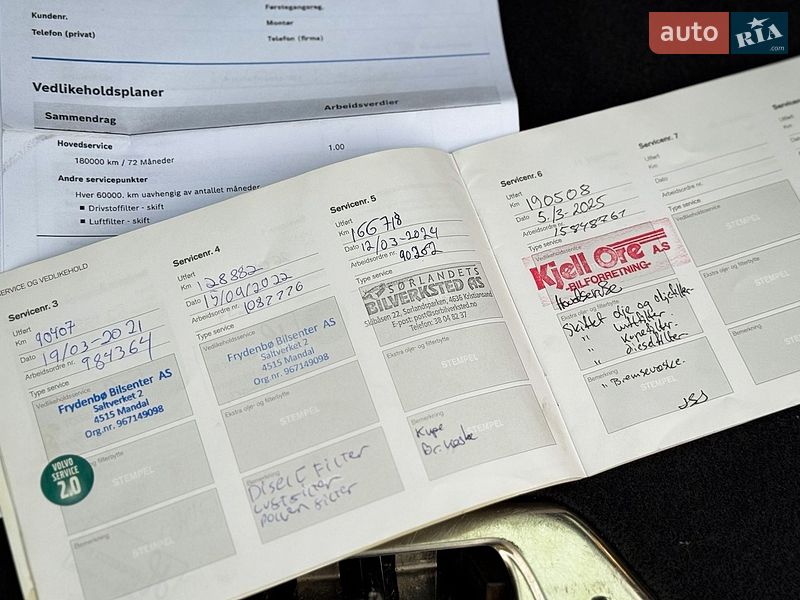 Kundenr.
Telefon (privat)
Førstegangsreg.
Montør
Telefon (firma)
auto RIA .com
Vedlikeholdsplaner
Sammendrag
Arbeidsverdier
Hovedservice 1.00
180000 km / 72 Måneder
Andre servicepunkter
Hver 60000. km uavhengig av antallet måneder
Drivstoffilter - skift
Luftfilter - skift
SERVICE OG VEDLIKEHOLD
Servicenr. 3
Utført
Km 90407
Dato 19/03-2021
Arbeidsordre nr. 984364
Type service
Vedlikeholdsservice
Frydenbø Bilsenter AS
Saltverket 2
4515 Mandal
Org.nr. 967149098
VOLVO
SERVICE
2.0
Ekstra olje- og filterbytte
STEMPEL
Bemerkning
STEMPEL
Servicenr. 4
Utført
Km 128882
Dato 19/09/2022
Arbeidsordre nr. 1087776
Type service
Vedlikeholdsservice
Frydenbø Bilsenter AS
Saltverket 2
4515 Mandal
Org.nr. 967149098
Ekstra olje- og filterbytte
STEMPEL
Bemerkning
Diesel Filter
Luftfilter
pollen filter
Servicenr. 5
Utført
Km 166718
Dato 12/03-2024
Arbeidsordre nr. 90252
Type service
SØRLANDETS
BILVERKSTED AS
Skibåsen 22, Sørlandsparken, 4636 Kristiansand
E-post: post@sorbilverksted.no
Telefon: 38 04 82 37
Ekstra olje- og filterbytte
STEMPEL
Bemerkning
Kupe
Br. Væske
Servicenr. 6
Utført
Km 190508
Dato 5/3-2025
Arbeidsordre nr. 15848761
Type service
Vedlikeholdsservice
Kjell Ore A.S
-BILFORRETNING-
Hovedservice
Ekstra olje- og filterbytte
Skiftet olje og oljefilter
" luftfilter
" kupefilter
" dieselfilter
Bemerkning
" Bremsevæske
Servicenr. 7
Utført
Km
Dato
Arbeidsordre nr.
Type service
Vedlikeholdsservice
STEMPEL
Ekstra olje- og filterbytte
STEMPEL
Bemerkning
STEMPEL